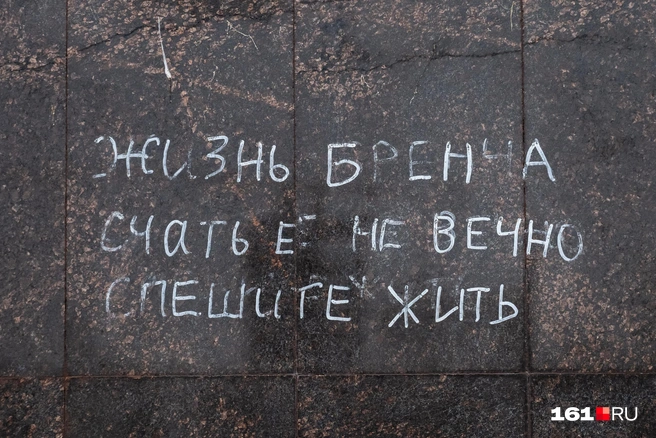 ЖИЗНЬ БРЕНЧА
СЧАТЬЕ НЕ ВЕЧНО
СПЕШИТЕ ЖИТЬ
161.RU